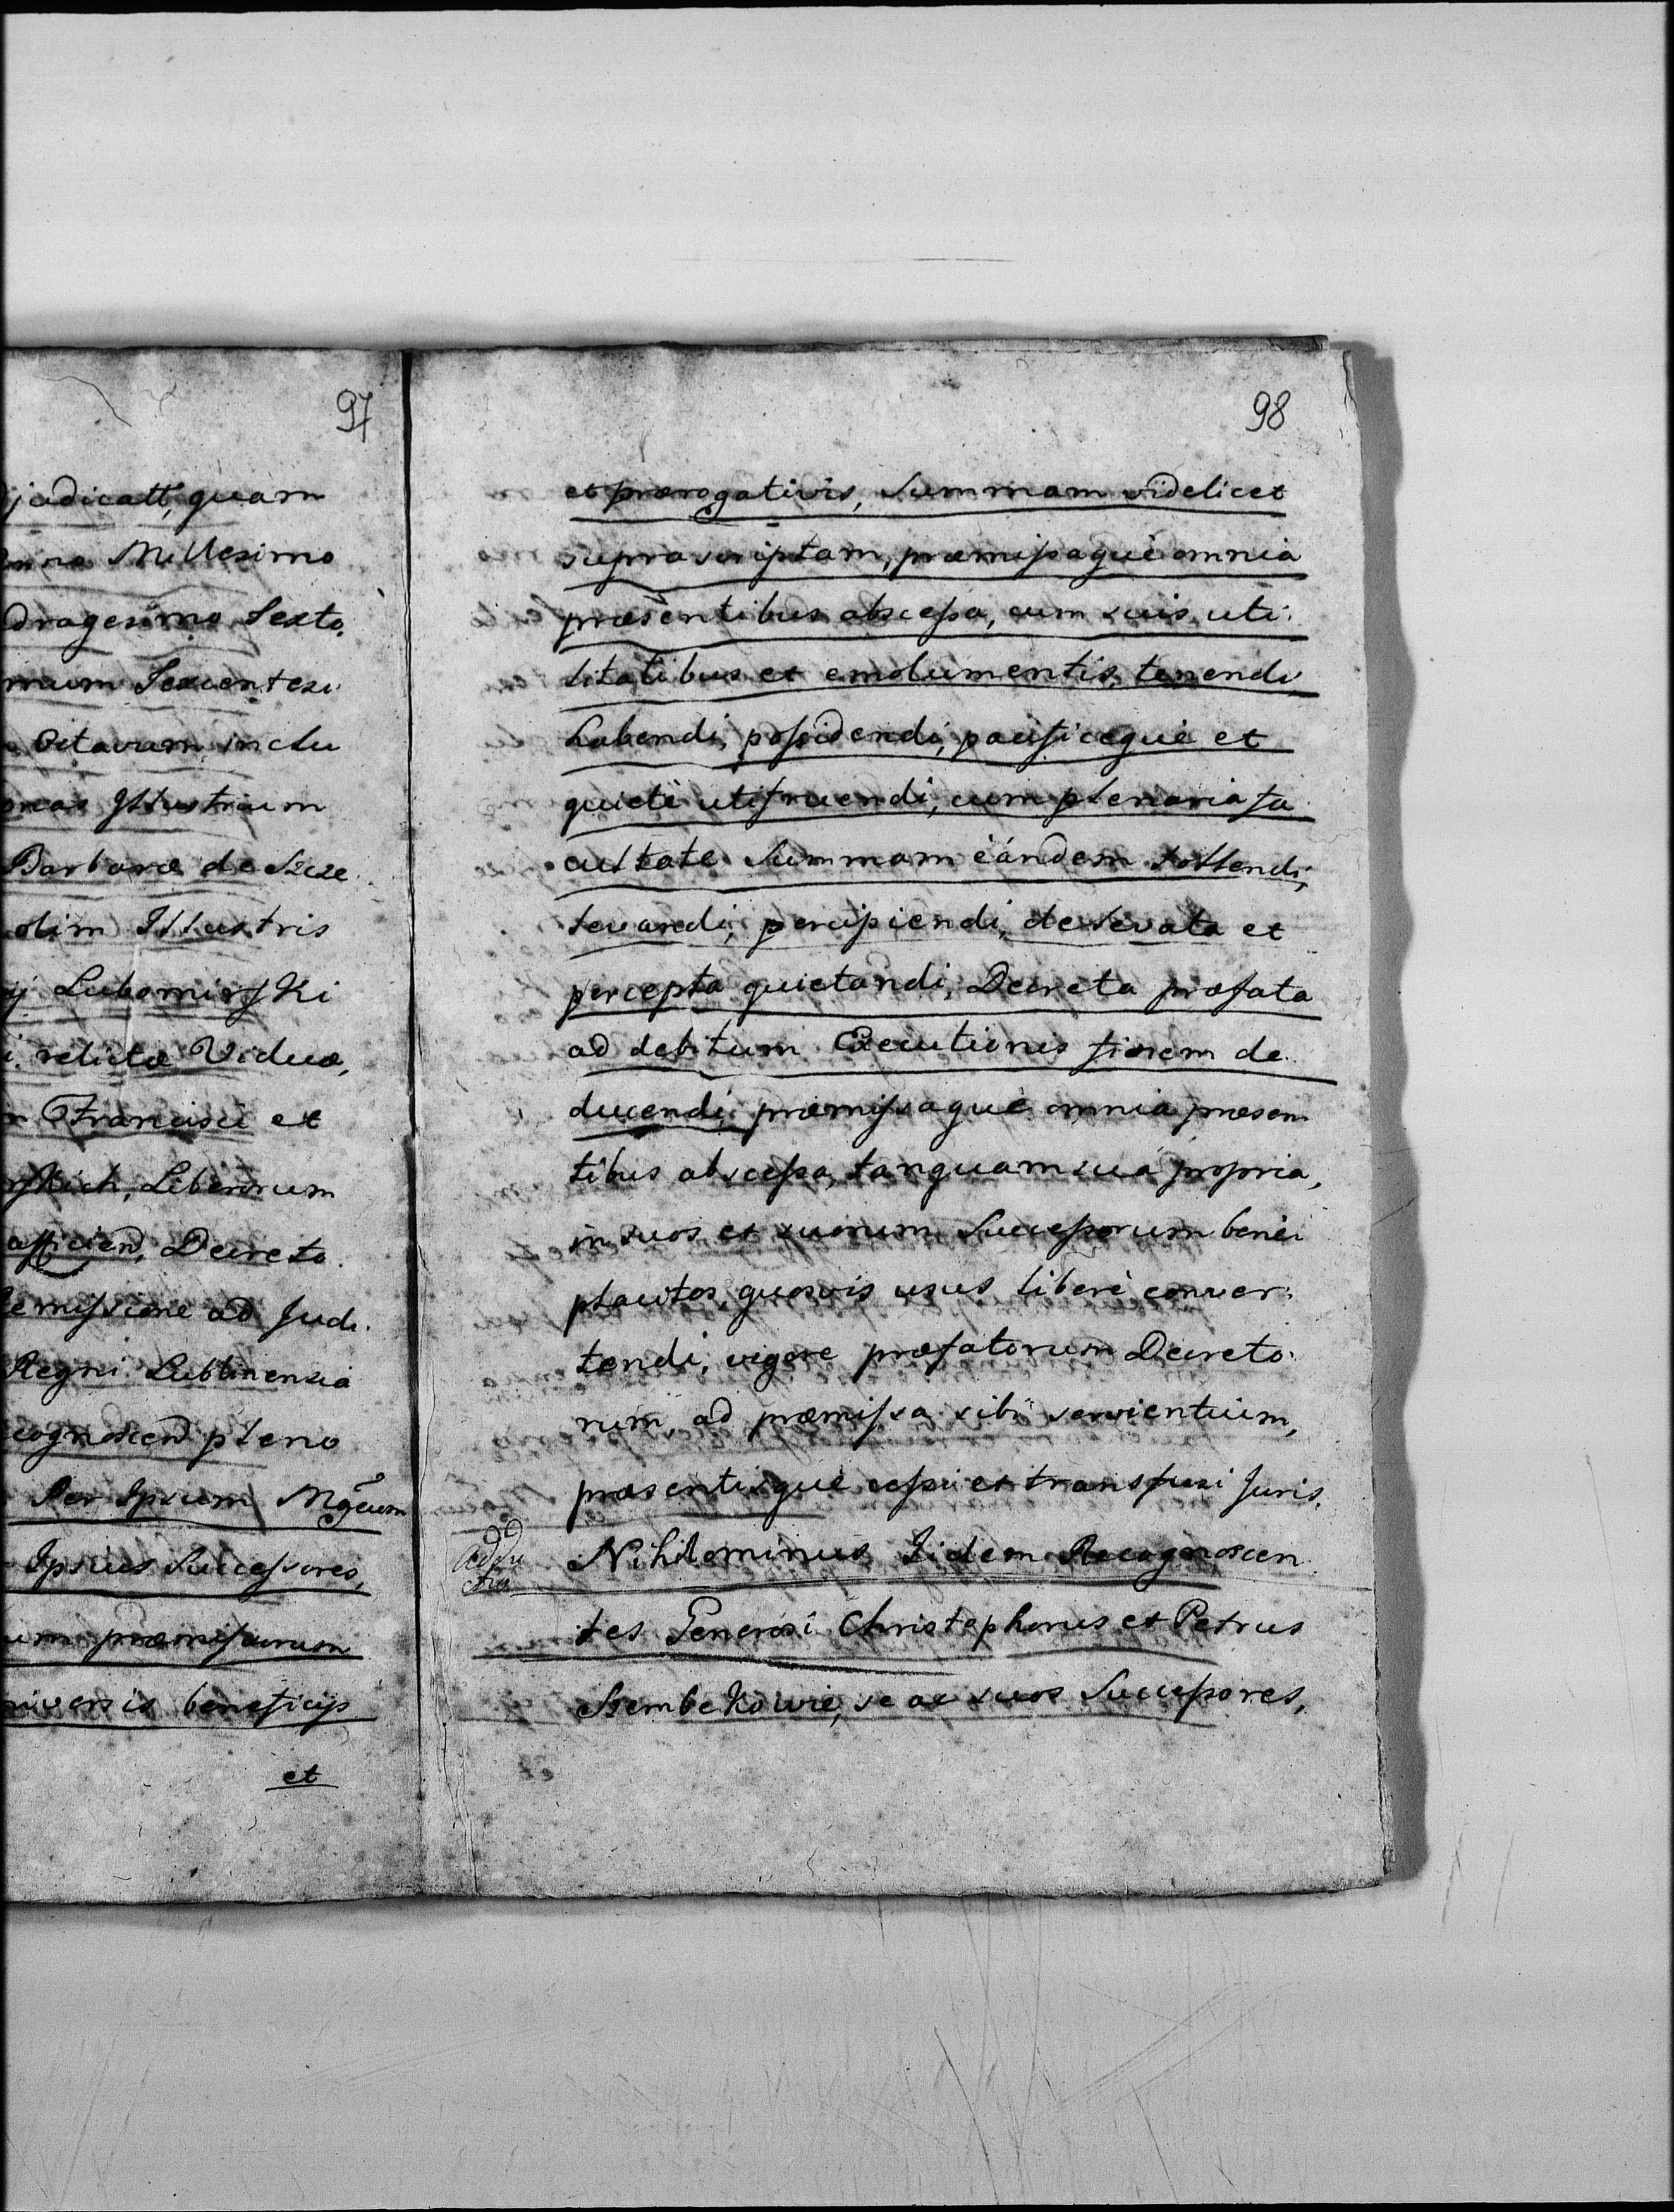 97
judicatt, quam
Anno Millesimo
dragesimo Sexto,
mum Sexcentesi
Octavum, inclu
oneas Illustrium
Barbaræ de Szcze
olim Illustris
ij Lubomirski
i, relictæ Viduæ,
Francisci et
rskich, Liberorum
afficien, Decreto
Remissione ad Judi.
Regni Lublinensia
cognoscen pleno
Per Ipsum Mgcum
Ipsius Successores,
um præmissorum
niversis beneficijs
et
98
et prærogativis, Summam videlicet
suprascriptam, præmissaquè omnia
præsentibus abscessa, cum suis uti:
litatibus et emolumentis, tenendi,
habendi, possidendi, pacificequè et
quietè utifruendi, cum plenaria fa
cultate Summam eandem tollendi,
levandi, percipiendi, de levata et
percepta quietandi, Decreta præfata
ad debitum Executionis finem de
ducendi, præmissaquè omnia præsen
tibus abscessa, tanquam sua propria,
in suos et suorum Successorum bene
placitos, quosvis usus liberè conver:
tendi, vigore præfatorum Decreto:
rum, ad præmissa sibi servientium,
præsentisquè cessi et transfusi Juris.
Nihilominus Iidem Recognoscen
tes Generosi Christophorus et Petrus
Szembekowie, se ac suos Successores,